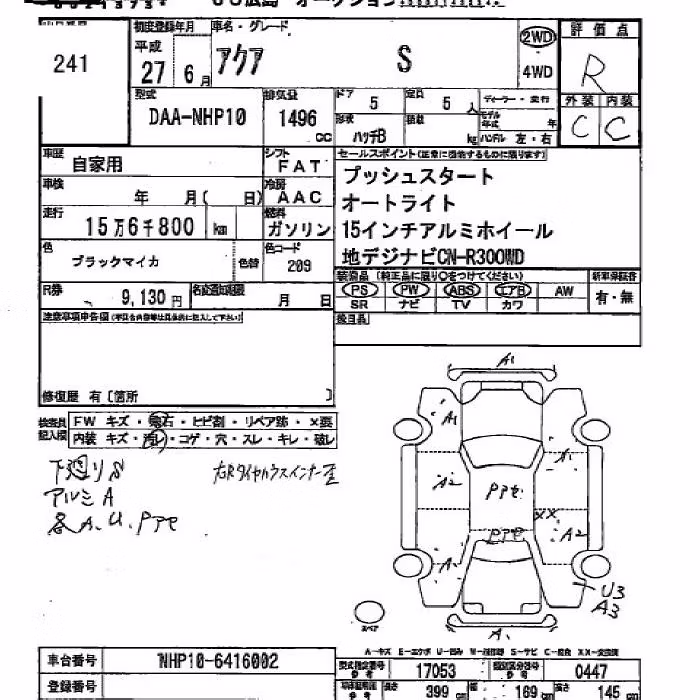 初度登録年月 車名・グレード 評価点
241 平成 27年 6月 アクア S 2WD 4WD R
型式 排気量 ドア 5 定員 5人 ディーラー・並行 外装 内装
DAA-NHP10 1496cc 形状 ハッチB 積載 kg モデル年式 年 ハンドル 左・右 C C
車歴 自家用 シフト FAT セールスポイント(正常に機能するものに限ります)
車検 年 月( 日) 冷房 AAC プッシュスタート
オートライト
走行 15万6千800 km 燃料 ガソリン 15インチアルミホイール
色 ブラックマイカ 色替 色コード 209 地デジナビCN-R300WD
装備品 (純正品に限り〇をつけてください) 新車保証書
R券 9,130円 名変通知期限 月 日 PS PW ABS エアB AW 有・無
SR ナビ TV カワ
注意事項申告欄 後日品
修復歴 有〔箇所 〕
検査員記入欄 FW キズ・飛石・ヒビ割・リペア跡・×要
内装 キズ・汚れ・コゲ・穴・スレ・キレ・破レ
下廻りS 右Rタイヤハウスインナー歪
アルミA
各A、U、Pアセ
A1
A1 A1
A2 Pアセ XX A2
Pアセ
A1 U3
A3
A1
スペア
A-キズ E-エクボ U-凹み S-サビ C-腐食 XX-交換済
車台番号 NHP10-6416002 型式指定番号 17053 類別区分番号 0447
登録番号 長さ 399cm 幅 169cm 高さ 145cm